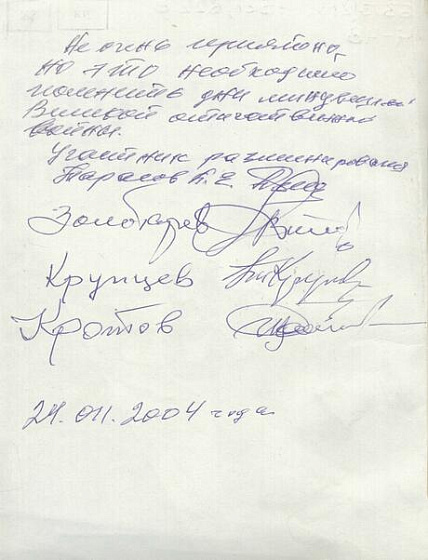 Не очень приятно,
но это необходимо
помнить дни минувшей
Великой отечественной
войны.
Участник разминирования
Тарасов
Крупцев
Кротов
24.01.2004 года